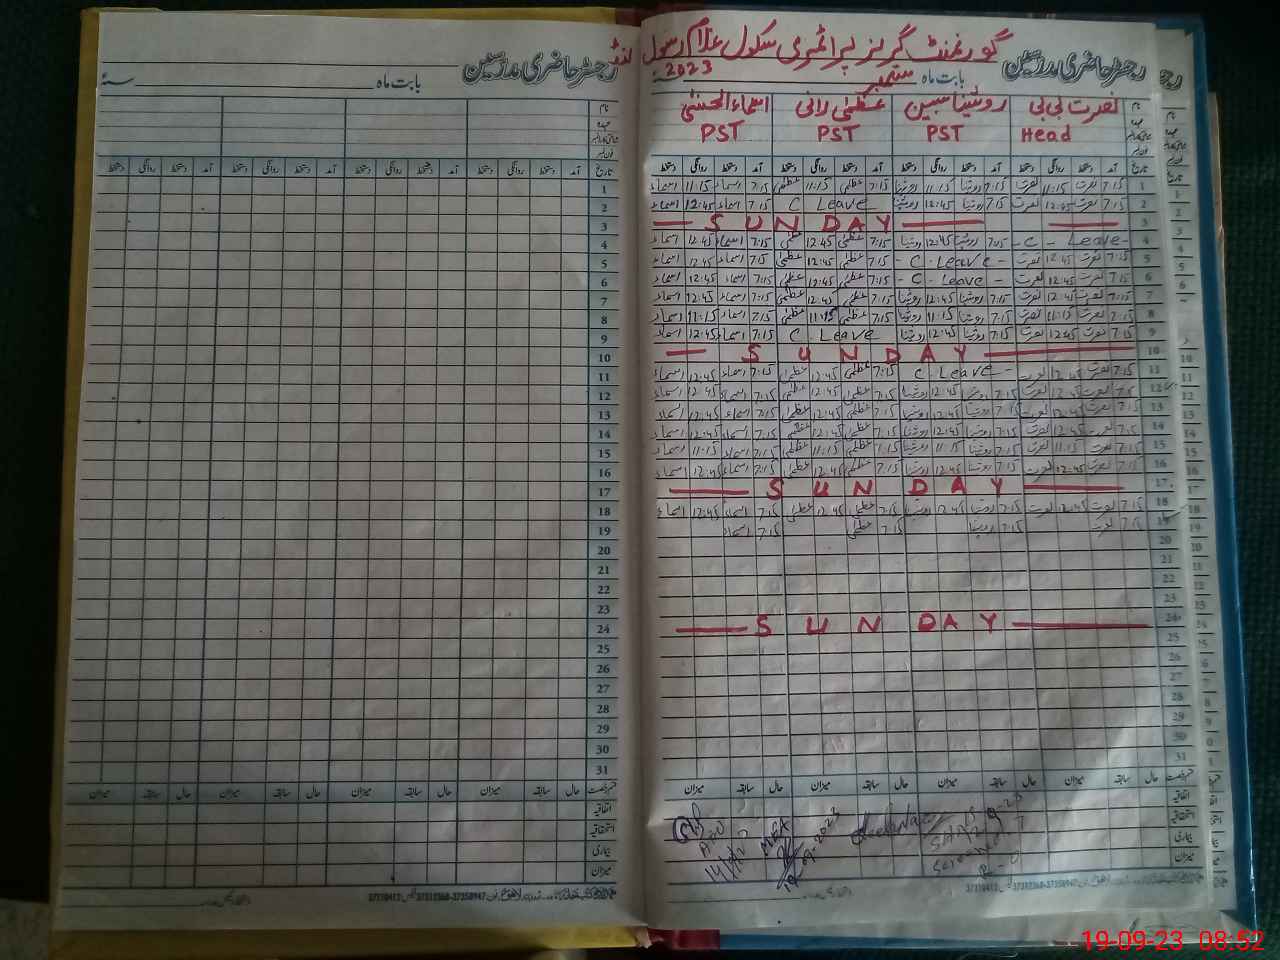 گورنمنٹ گرلز پرائمری سکول غلام رسول لنڈ
رجسٹر حاضری مدرسین بابت ماہ ستمبر 2023ء
نام نصرت بی بی روشینا سبین عظمٰی رانی اسماء الحسنٰی
عہدہ Head PST PST PST
تاریخ آمد دستخط روانگی دستخط آمد دستخط روانگی دستخط آمد دستخط روانگی دستخط آمد دستخط روانگی دستخط
1 7:15 نصرت 11:15 نصرت 7:15 روشینا 11:15 روشینا 7:15 عظمٰی 11:15 عظمٰی 7:15 اسماء 11:15 اسماء
2 7:15 نصرت 12:45 نصرت 7:15 روشینا 12:45 روشینا C Leave 7:15 اسماء 12:45 اسماء
3 SUNDAY
4 - C - Leave - 7:15 روشینا 12:45 روشینا 7:15 عظمٰی 12:45 عظمٰی 7:15 اسماء 12:45 اسماء
5 7:15 نصرت 12:45 نصرت - C. Leave - 7:15 عظمٰی 12:45 عظمٰی 7:15 اسماء 12:45 اسماء
6 7:15 نصرت 12:45 نصرت - C. Leave - 7:15 عظمٰی 12:45 عظمٰی 7:15 اسماء 12:45 اسماء
7 7:15 نصرت 12:45 نصرت 7:15 روشینا 12:45 روشینا 7:15 عظمٰی 12:45 عظمٰی 7:15 اسماء 12:45 اسماء
8 7:15 نصرت 11:15 نصرت 7:15 روشینا 11:15 روشینا 7:15 عظمٰی 11:15 عظمٰی 7:15 اسماء 11:15 اسماء
9 7:15 نصرت 12:45 نصرت 7:15 روشینا 12:45 روشینا C Leave 7:15 اسماء 12:45 اسماء
10 SUNDAY
11 7:15 نصرت 12:45 نصرت C. Leave - 7:15 عظمٰی 12:45 عظمٰی 7:15 اسماء 12:45 اسماء
12 7:15 نصرت 12:45 نصرت 7:15 روشینا 12:45 روشینا 7:15 عظمٰی 12:45 عظمٰی 7:15 اسماء 12:45 اسماء
13 7:15 نصرت 12:45 نصرت 7:15 روشینا 12:45 روشینا 7:15 عظمٰی 12:45 عظمٰی 7:15 اسماء 12:45 اسماء
14 7:15 نصرت 12:45 نصرت 7:15 روشینا 12:45 روشینا 7:15 عظمٰی 12:45 عظمٰی 7:15 اسماء 12:45 اسماء
15 7:15 نصرت 11:15 نصرت 7:15 روشینا 11:15 روشینا 7:15 عظمٰی 11:15 عظمٰی 7:15 اسماء 11:15 اسماء
16 7:15 نصرت 12:45 نصرت 7:15 روشینا 12:45 روشینا 7:15 عظمٰی 12:45 عظمٰی 7:15 اسماء 12:45 اسماء
17 SUNDAY
18 7:15 نصرت 12:45 نصرت 7:15 روشینا 12:45 روشینا 7:15 عظمٰی 12:45 عظمٰی 7:15 اسماء 12:45 اسماء
19 7:15 نصرت 7:15 روشینا 7:15 عظمٰی 7:15 اسماء
20
21
22
23
24 SUNDAY
25
26
27
28
29
30
31
حال سابقہ میزان حال سابقہ میزان حال سابقہ میزان
اتفاقیہ
استحقاقیہ
بیماری
میزان
MEA
19-09-2023
رجسٹر حاضری مدرسین بابت ماہ سنہ
نام
عہدہ
تاریخ آمد دستخط روانگی دستخط آمد دستخط روانگی دستخط آمد دستخط روانگی دستخط آمد دستخط روانگی دستخط
1
2
3
4
5
6
7
8
9
10
11
12
13
14
15
16
17
18
19
20
21
22
23
24
25
26
27
28
29
30
31
حال سابقہ میزان حال سابقہ میزان حال سابقہ میزان حال سابقہ میزان
اتفاقیہ
استحقاقیہ
بیماری
میزان
19-09-23 08:52